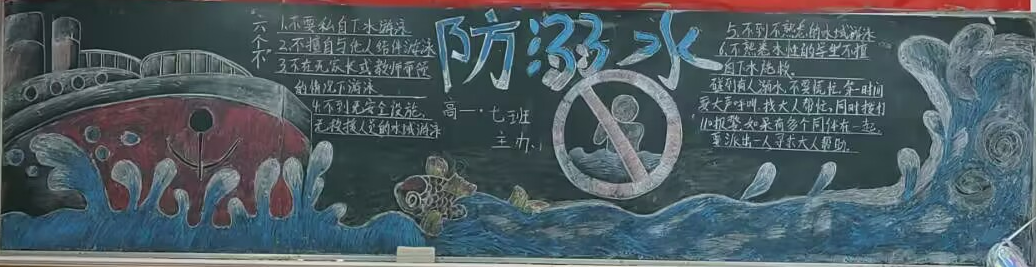 六个不
1.不要私自下水游泳
2.不擅自与他人结伴游泳
3.不在无家长或教师带领
的情况下游泳
4.不到无安全设施、
无救援人员的水域游泳
防溺水
高一·七班
主办
5.不到不熟悉的水域游泳
6.不熟悉水性的学生不擅
自下水施救
碰到有人溺水,不要慌忙,第一时间
要大声呼叫,找大人帮忙,同时拨打
110报警,如果有多个同伴在一起,
要派出一人寻求大人帮助。